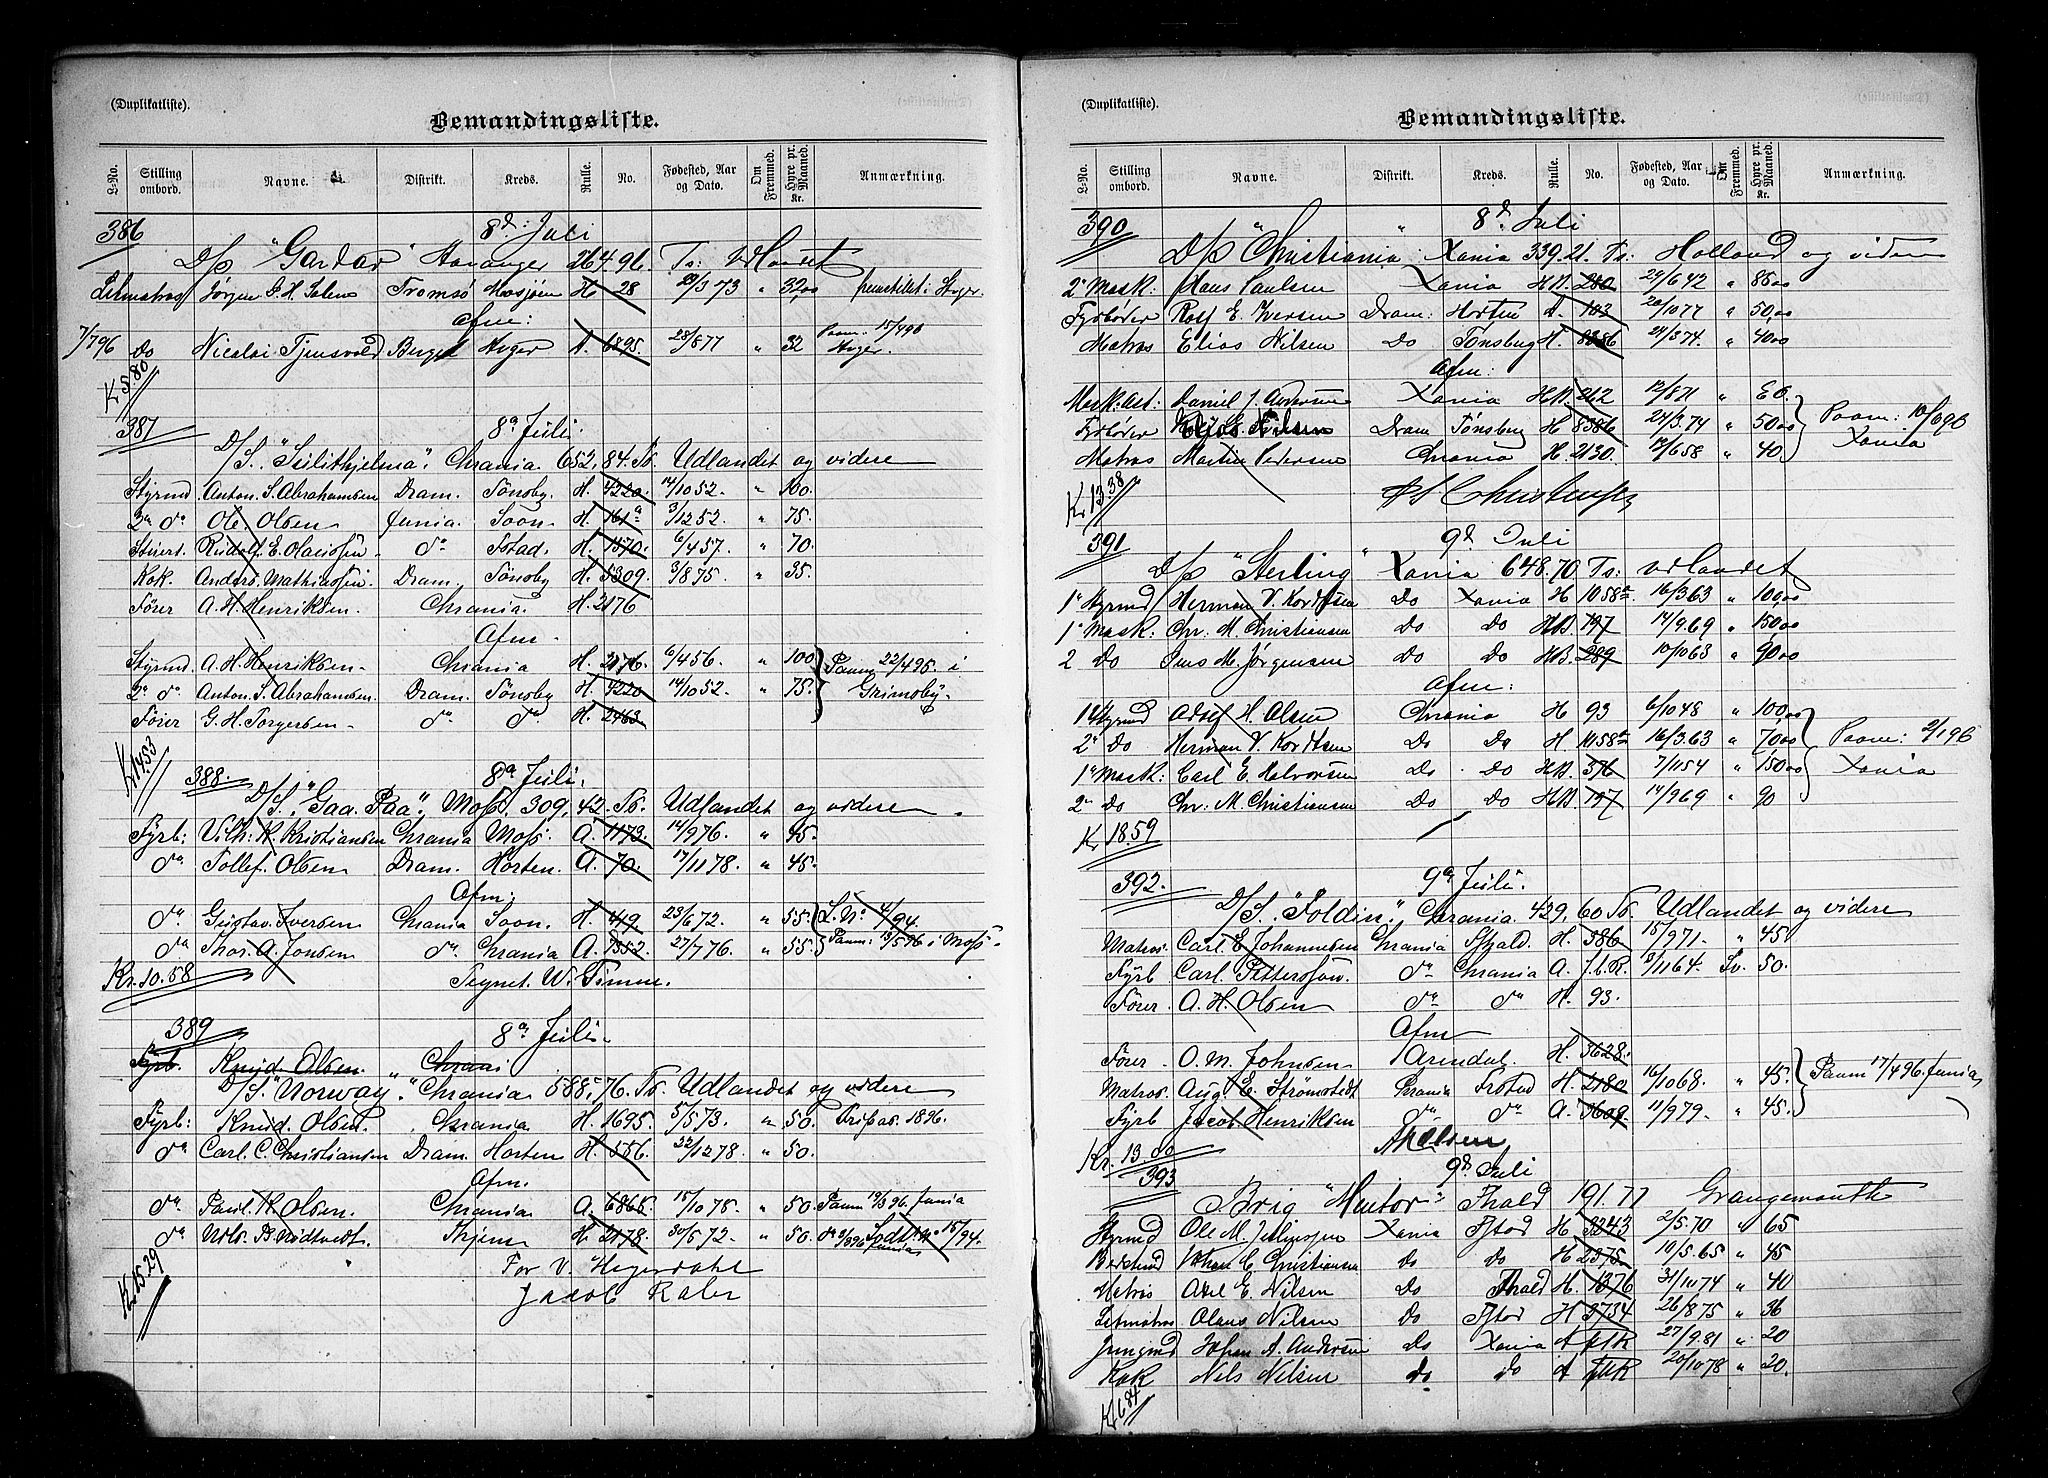 (Duplikatliste).
Bemandingsliste.
L-No. Stilling ombord. Navne. Distrikt. Kreds. Rulle. No. Fødested, Aar og Dato. Om Fremmed. Hyre pr. Maaned. Kr. Anmærkning.
386 8d Juli
D/S "Gardar" Stavanger 264.96. Ts: Udlandet
Letmatros Jørgen Tromsø Mosjøen H 28 29/3 73 " 32,00
Afm:
7/796 Do Nicolai Tjensvold Bergen Avger A. 6895. 28/877 " 32 Paam. 15/496
Kr 5.80
387 8de Juli.
D/S. "Sulithjelma". Chrania. 652,84. Ts. Udlandet og videre
Styrmd. Anton. S. Abrahamsen Dram. Tönsbg. H. 4220. 14/10 52. " 100.
2n do Ole Olsen Xania. Soon. H. 161a 3/12 52. " 75.
Stuert. Rudolf. E. Olaussen. do Fstad. H. 1570. 6/4 57. " 70.
Kok. Anders. Mathiassen. Dram. Tönsbg H. 5309. 3/8 75. " 35.
Förer A. H. Henriksen. Chrania. H. 2176
Afm.
Styrmd. A. H. Henriksen. Chrania H. 2176. 6/4 56. " 100. Paam 22/4 95. i
2n do Anton. S. Abrahamsen. Dram. Tönsbg H. 4220 14/10 52. " 75. Grimsby.
Förer G. H. Torgersen. do do H. 2463
Kr 14.53
388. 8de Juli.
D/S. "Gaa Paa", Moss. 309,42. Ts. Udlandet og videre.
Fyrb: Vilh: K. Kristiansen Chrania Moss. A. 1173. 14/9 76. " 45.
do Tollef. Olsen Dram. Horten. A. 70. 17/11 78. " 45.
Afm.
do Gustav. Iversen Chrania Soon. H. 419 23/6 72. " 55.
do Thos. A. Jonsen do Chrania A. 7352. 27/7 76. " 55. i Moss.
Kr. 10.58 Tegnet. W. Timme.
389 8de Juli.
Fyrb. Knud. Olsen.
D/S. "Norway". Chrania 588,76. Ts. Udlandet og videre
Fyrb: Knud. Olsen. Chrania H. 1695. 5/5 73. " 50. 1896.
do Carl. C. Christiansen Dram. Horten H. 586. 22/12 78. " 50.
Afm.
do Paul. K. Olsen. Chrania A. 6868. 15/10 78. " 50. Paam 19/3 96. Xania
do Nils. B. Midtvedt. H. 2178. 30/5 72. " 50.
Kr. 15.29 For V. Hegerdahl
Jacob
(Duplikatliste).
Bemandingsliste.
L-No. Stilling ombord. Navne. Distrikt. Kreds. Rulle. No. Fødested, Aar og Dato. Om Fremmed. Hyre pr. Maaned. Kr. Anmærkning.
390 8d Juli
D/S "Christiania" Xania 339.21. Ts: Holland og videre
2n Mask: Hans Paulsen Xania HM. 280 29/6 42 " 85,00
Fyrbøder Rolf E. Iversen Dram: Horten A. 103 20/10 77 " 50,00
Matros Elias Nilsen Do Tønsberg H. 8386 24/3 74. " 40,00
Afm:
Mask. Ast: Daniel J. Andersen Xania HM. 262 12/6 71 " 60.
Fyrbøder Elias Nilsen Dram Tønsberg H 8386 24/3.74 " 50,00 Paam: 10/696
Matros Martin Pedersen Chrania H. 2130. 12/6 58 " 40. Xania
Kr 13.38
391 9d Juli
D/S "Sterling" Xania 648.70 Ts: Udlandet
1n Styrmd Herman V. Kordtsen Do Xania H 1058a 16/3.63 " 100,00
1n Mask: Chr. M. Christiansen Do Do HM. 197 14/9.69 " 150,00
2 Do Jens M. Jørgensen Do Do HM. 289 10/10 63 " 90,00
Afm:
1n Styrmd Adolf H. Olsen Chrania H 93 6/10 48 " 100,00
2n Do Herman V. Kordtsen Do Do H 1058a 16/3.63 " 70,00 Paam: 2/196
1n Mask: Carl E. Halvorsen Do Do HM. 376 7/11 54 " 150,00 Xania
2n Do Chr: M. Christiansen Do Do HM. 197 14/9 69 " 90
Kr 18.59
392. 9de Juli.
D/S. "Foldin", Chrania. 429,60 Ts. Udlandet og videre
Matros. Carl. E. Johannesen Chrania Fhald. H. 386 15/9 71. " 45
Fyrb Carl. Pettersson. do Chrania A. J.b.R. 8/11 64. Sv. 50.
Förer A. H. Olsen do do H. 93.
Afm
Förer. O. M. Johnsen Arendal. H. 3628.
Matros. Aug. E. Strömstedt Chrania Frstad H. 2180 16/10 68. " 45. Paam 17/4 96. Xania
Fyrb Jacob Henriksen do do A. 3609. 11/9 79. " 45.
Kr. 13.00 AHOlsen
393 9d Juli
Brig "Mentor" Fhald 191.77 Grangemouth
Styrmd Ole M. Xania Fstad H 3243 2/5.70 " 65
Bestmd Johan C. Christiansen Do Do H 2375. 10/5.65 " 45
Matros Axel E. Nilsen Do Fhald H. 1376 31/10 74 " 40
Letmatros Olaus Nilsen Do Fstad H 3734 26/8 75 " 36
Jungmd Johan A. Andersen Do Xania A 27/9.81 " 20
Kok Nels Nilsen Do Do A 20/10 78 " 20.
Kr 6.84